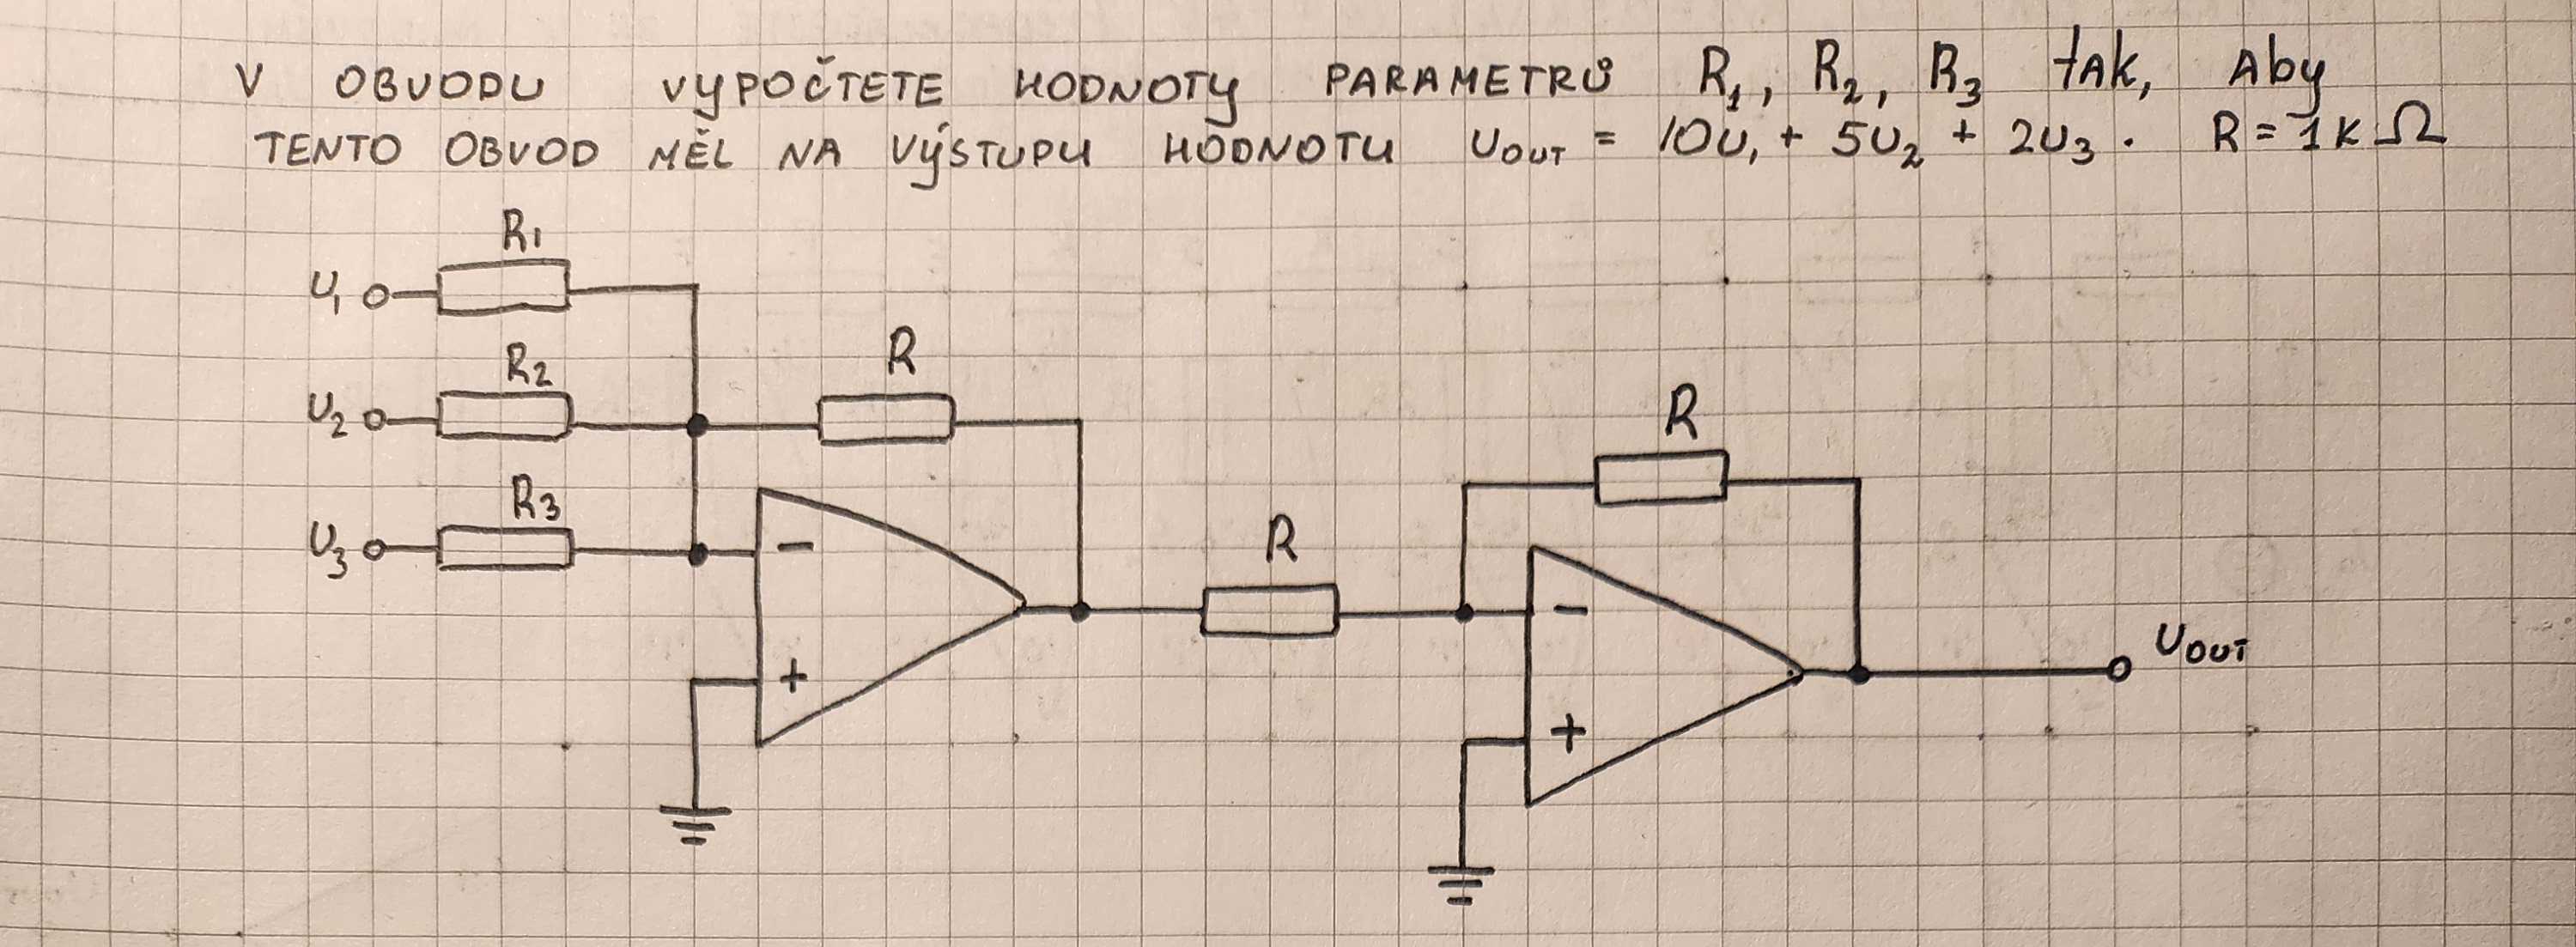 V OBVODU VYPOČTETE HODNOTY PARAMETRŮ R1, R2, R3 tAK, Aby
TENTO OBVOD MĚL NA VÝSTUPU HODNOTU UOUT = 10U1 + 5U2 + 2U3. R = 1KΩ
R1
U1
R2
R
U2
R
R3
R
U3
−
−
+
+
UOUT